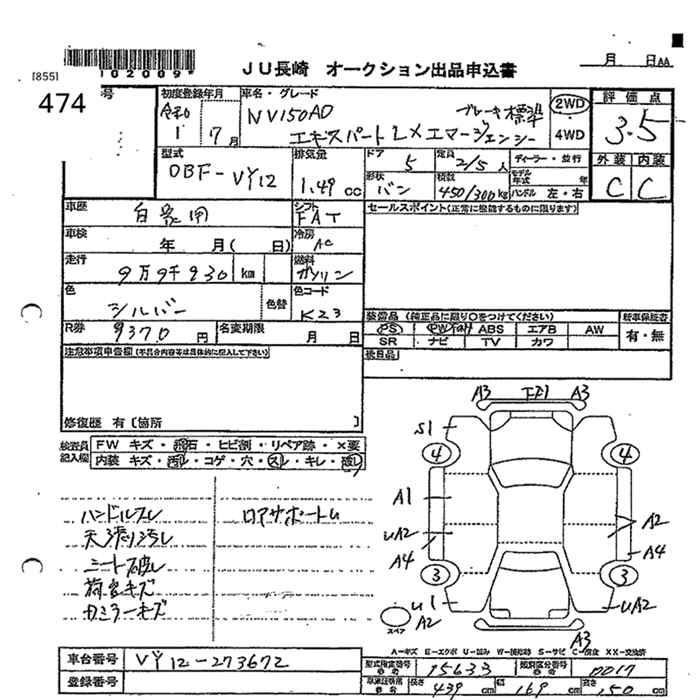 [855]
02009
JU長崎 オークション出品申込書
月 日AA
474 号
初度登録年月 車名・グレード 評価点
令和1 7月 NV150AD ブレーキ標準 2WD 3.5
エキスパートLXエマージェンシー 4WD
型式 排気量 ドア 5 定員 2/5人 ディーラー・並行 外装 内装
DBF-VY12 1.49cc 形状 バン 積数 450/300kg モデル年式 年 ハンドル 左・右 C C
車歴 自家用 シフト FAT セールスポイント(正常に機能するものに限ります)
車検 年 月( 日) 冷房 AC
走行 9万9千930km 燃料 ガソリン
色 シルバー 色替 色コード K23 装備品(純正品に限り○をつけてください) 新車保証書
R券 9370円 名変期限 月 日 PS PW ABS エアB AW 有・無
SR ナビ TV カワ
注意事項申告欄(不具合内容等は具体的に記入して下さい) 後日品
修復歴 有〔箇所 〕
検査員記入欄 FW キズ・飛石・ヒビ割・リペア跡・×要
内装 キズ・汚レ・コゲ・穴・スレ・キレ・破レ
ハンドルスレ ロアサポートU
天張り汚レ
シート破レ
荷室キズ
Rミラーキズ
A3 A3
S1
4 4
A1
UA2 A2
A4 A4
3 3
U1 UA2
スペア A2
A3
A=キズ E=エクボ U=凹み W=補修跡 S=サビ C=腐食 XX=交換済
車台番号 VY12-273672 型式指定番号 15633 類別区分番号 0017
登録番号 長さ 439cm 幅 169cm 高さ 150cm